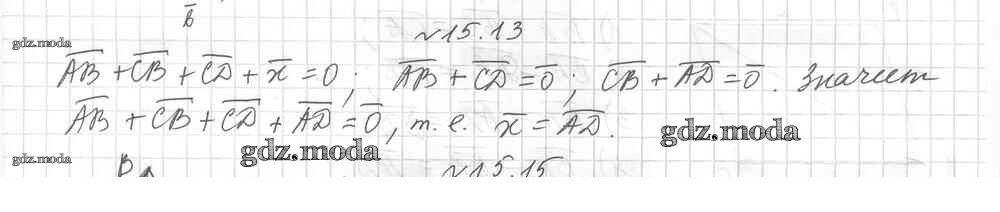 b̅
№15.13
gdz.moda
A̅B̅ + C̅B̅ + C̅D̅ + x̅ = 0; A̅B̅ + C̅D̅ = 0̅; C̅B̅ + A̅D̅ = 0̅. Значит
A̅B̅ + C̅B̅ + C̅D̅ + A̅D̅ = 0̅, т. е. x̅ = A̅D̅.
gdz.moda
gdz.moda
gdz.moda
B
№15.15